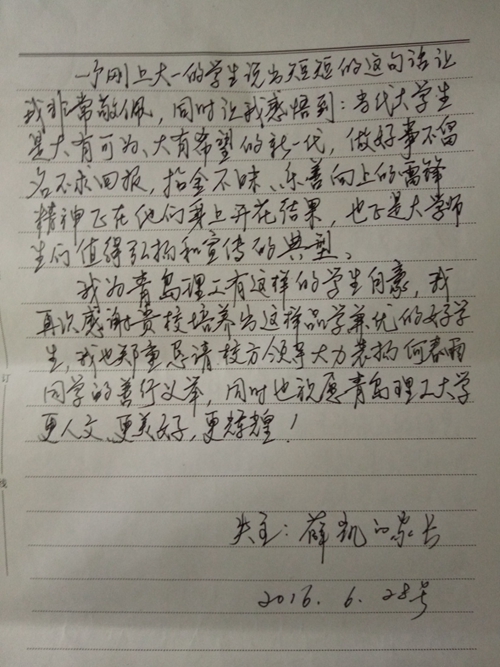 一个刚上大一的学生说出短短的这句话让
我非常敬佩，同时让我感悟到：当代大学生
是大有可为、大有希望的新一代，做好事不留
名不求回报，拾金不昧、乐善向上的雷锋
精神正在他们身上开花结果，也正是大学师
生们值得弘扬和宣传的典型、
我为青岛理工有这样的学生自豪，我
再次感谢贵校培养出这样品学兼优的好学
生，我也郑重恳请校方领导大力表扬何春雨
同学的善行义举，同时也祝愿青岛理工大学
更人文、更美好，更辉煌！
失主：薛凯的家长
2016.6.28号
订
线